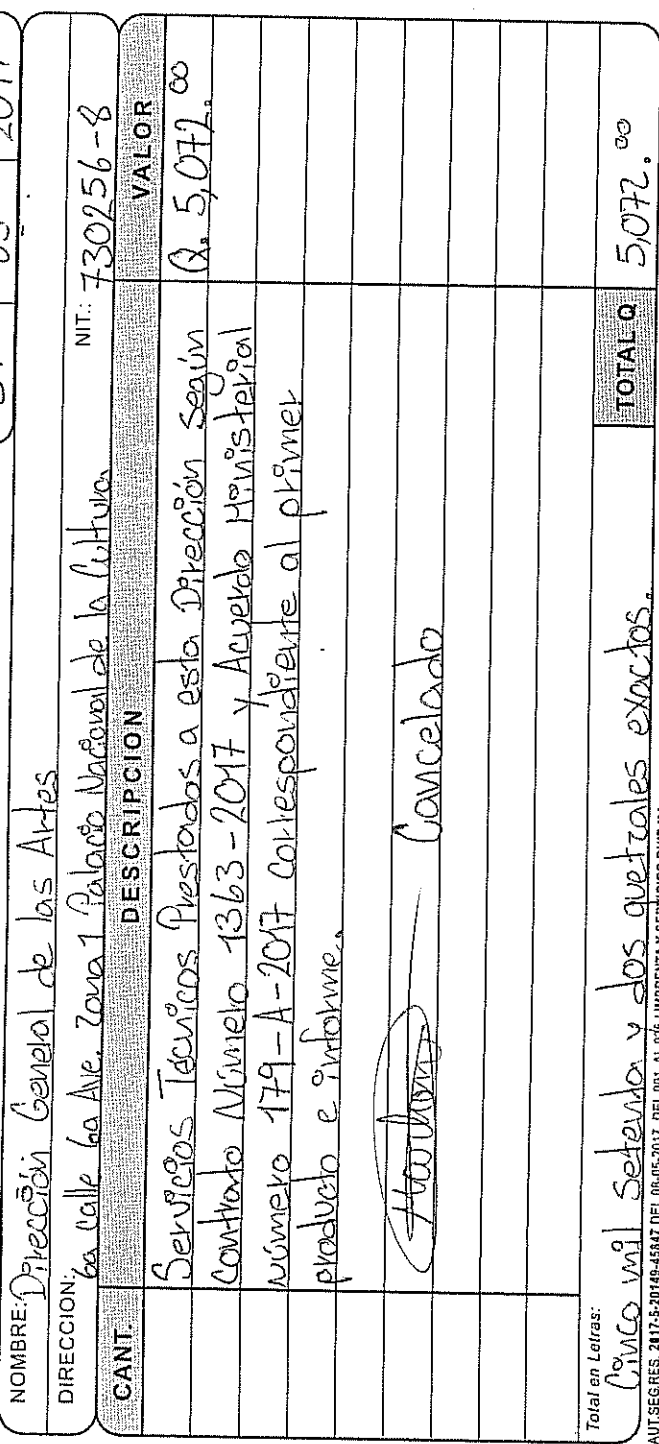 2017
NOMBRE: Dirección General de las Artes
DIRECCION: 6a calle 6a Ave. Zona 1 Palacio Nacional de la Cultura NIT.: 730256-8
CANT. DESCRIPCION VALOR
Servicios Técnicos Prestados a esta Dirección según Q. 5,072.00
Contrato Número 1363-2017 y Acuerdo Ministerial
número 179-A-2017 Correspondiente al primer
producto e informe.
Cancelado
Total en Letras:
Cinco mil Setenta y dos quetzales exactos. TOTAL Q 5,072.00
AUT.SEG.RES. 2017-5-20149-45847 DEL 06-05-2017 DEL 001 AL